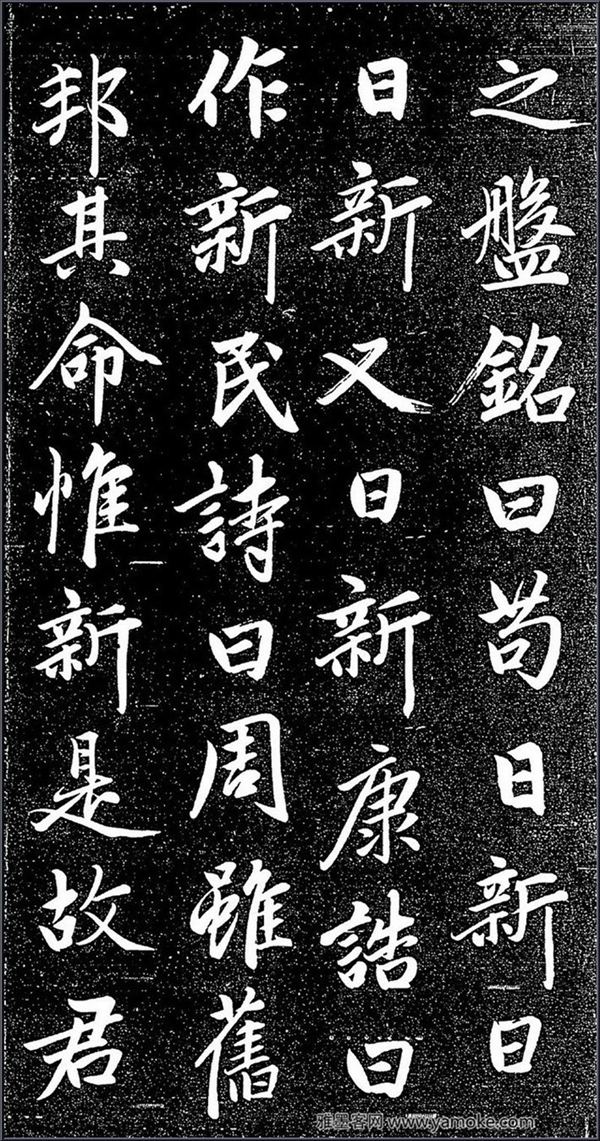 之盤銘曰苟日新日
日新又日新康誥曰
作新民詩曰周雖舊
邦其命惟新是故君
雅墨客网 www.yamoke.com